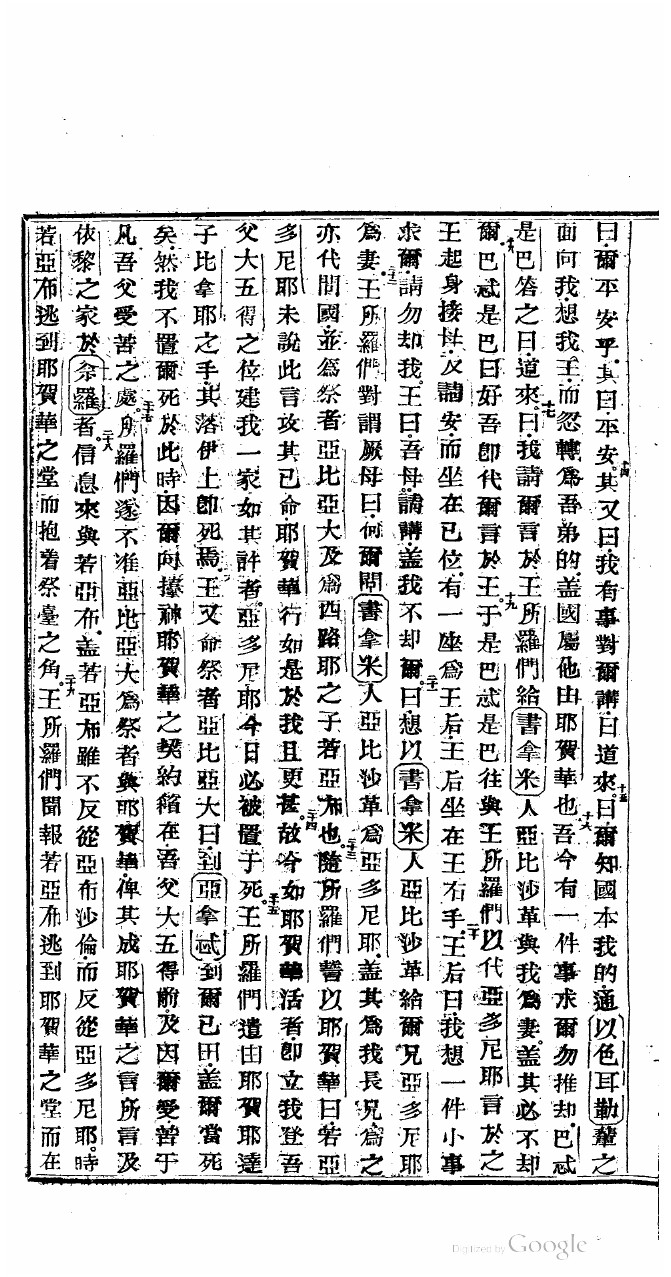 曰爾平安乎其曰平安其又曰我有事對爾講曰道來曰爾知國本我的通以色耳勒輩之
面向我想我王而忽轉爲吾弟的盖國屬他由耶賀華也吾今有一件事求爾勿推却巴忒
是巴答之曰道來曰我請爾言於王所羅們給書拿米人亞比沙革與我爲妻盖其必不却
爾巴忒是巴曰好吾卽代爾言於王于是巴忒是巴往與王所羅們以代亞多尼耶言於之
王起身接母及請安而坐在已位有一座爲王后王后坐在王右手王后曰我想一件小事
求爾請勿却我王曰吾母請講盖我不却爾曰想以書拿米人亞比沙革給爾兄亞多尼耶
爲妻王所羅們對謂厥母曰何爾問書拿米人亞比沙革爲亞多尼耶盖其爲我長兄爲之
亦代問國並爲祭者亞比亞大及爲西路耶之子若亞布也隨所羅們誓以耶賀華曰若亞
多尼耶未說此言攻其已命耶賀華行如是於我且更甚故今如耶賀華活者卽立我登吾
父大五得之位建我一家如其許者亞多尼耶今日必被置于死王所羅們遣由耶賀耶達
子比拿耶之手其落伊上卽死焉王又命祭者亞比亞大曰到亞拿忒到爾已田盖爾當死
矣然我不置爾死於此時因爾向擡神耶賀華之契約箱在吾父大五得前及因爾受苦于
凡吾父受苦之處所羅們遂不准亞比亞大爲祭者與耶賀華俾其成耶賀華之言所言及
依黎之家於奈羅者信息來與若亞布盖若亞布雖不反從亞布沙倫而反從亞多尼耶時
若亞布逃到耶賀華之堂而抱着祭臺之角王所羅們聞報若亞布逃到耶賀華之堂而在
十四
十五
十六
十七
十八
十九
二十
二十一
二十二
二十三
二十四
二十五
二十七
二十八
二十九
Digitized by Google